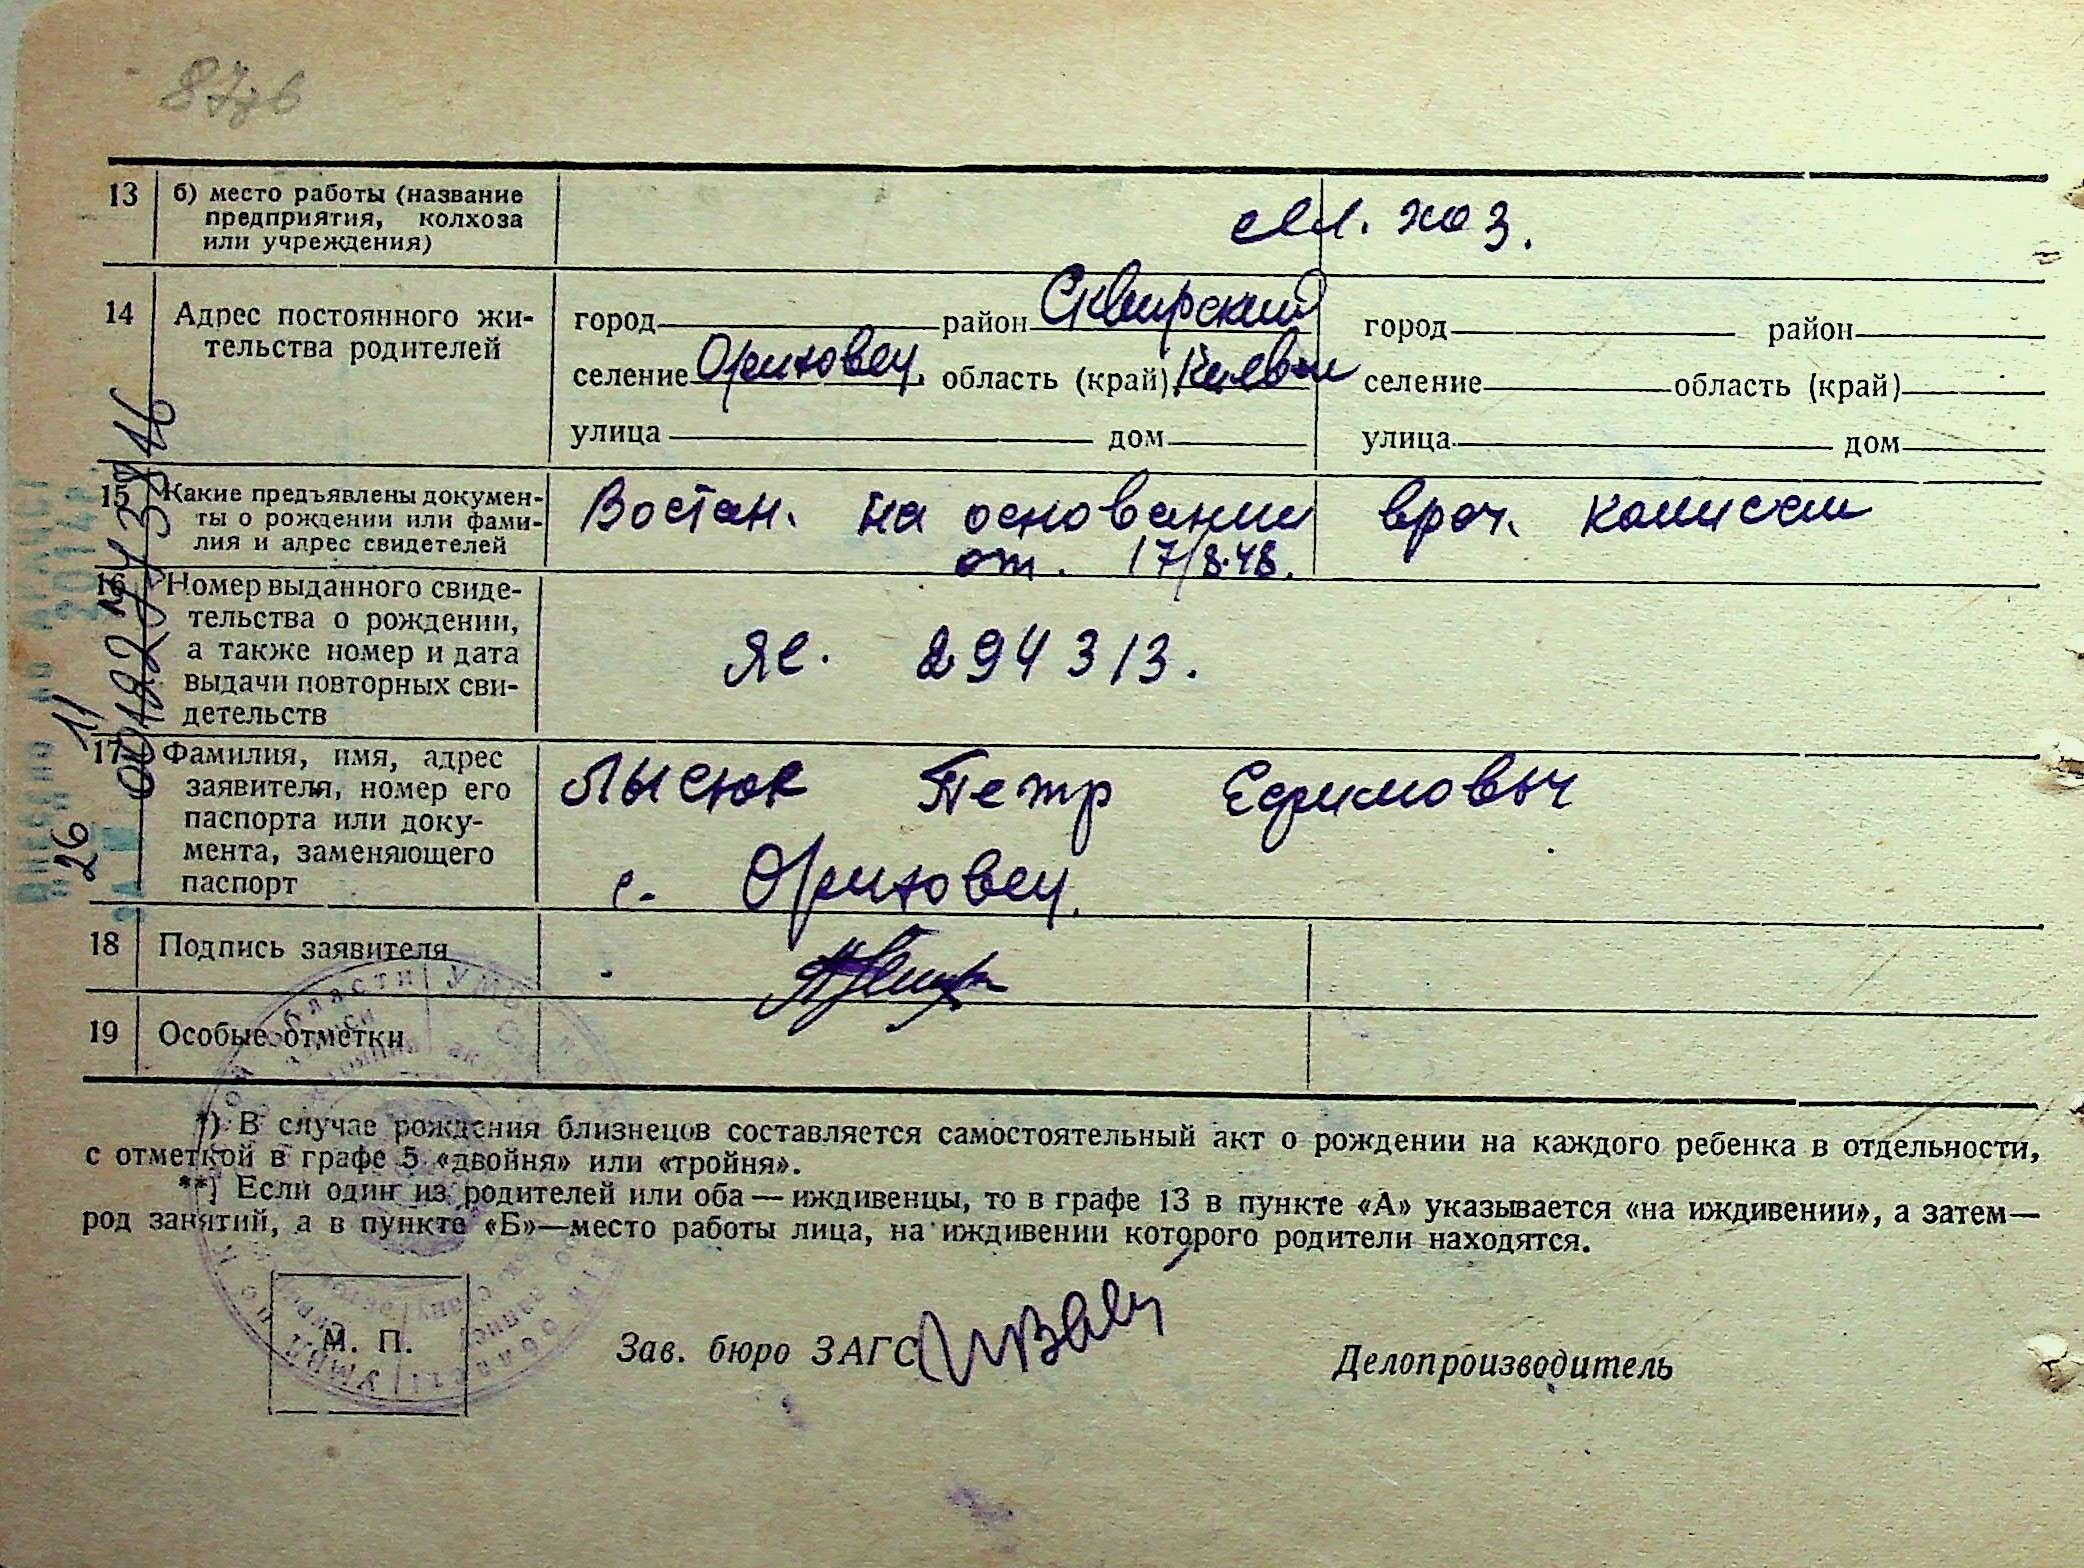 13 б) место работы (название
предприятия, колхоза
или учреждения)
сел. хоз.
14 Адрес постоянного жи-
тельства родителей
город район Сквирский город район
селение Ориховец. область (край) Киевск селение область (край)
улица дом улица дом
15 Какие предъявлены докумен-
ты о рождении или фами-
лия и адрес свидетелей
Востан. на основании врач. комисии
от. 17/8.48.
16 Номер выданного свиде-
тельства о рождении,
а также номер и дата
выдачи повторных сви-
детельств
ЯС. 294313.
17 Фамилия, имя, адрес
заявителя, номер его
паспорта или доку-
мента, заменяющего
паспорт
Лысюк Петр Ефимовыч
с. Ориховец.
18 Подпись заявителя
19 Особые отметки
*) В случае рождения близнецов составляется самостоятельный акт о рождении на каждого ребенка в отдельности,
с отметкой в графе 5 «двойня» или «тройня».
**) Если один из родителей или оба — иждивенцы, то в графе 13 в пункте «А» указывается «на иждивении», а затем—
род занятий, а в пункте «Б»—место работы лица, на иждивении которого родители находятся.
М. П.
Зав. бюро ЗАГС
Делопроизводитель
26 11